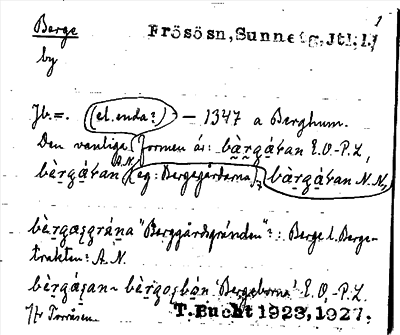 1
Berge Frösösn, Sunne tg, Jtl. l.
by
Jb. =. (el. enda?) — 1347 a Berghum.
Den vanliga formen är: bàrgá̱ɽan E.O.-P.L,
bàrgáɽan A.N. (eg. Bergegårdarna), bàrgáɽan N.N,
bàrgasgrána "Berggårdsgränden"?: Berge l. Berge-
trakten: A.N.
bàrgáṣan ~ bàrgoṣbón 'Bergeborna' E.O.-P.L.
Torråsen. T. Bucht 1923, 1927.